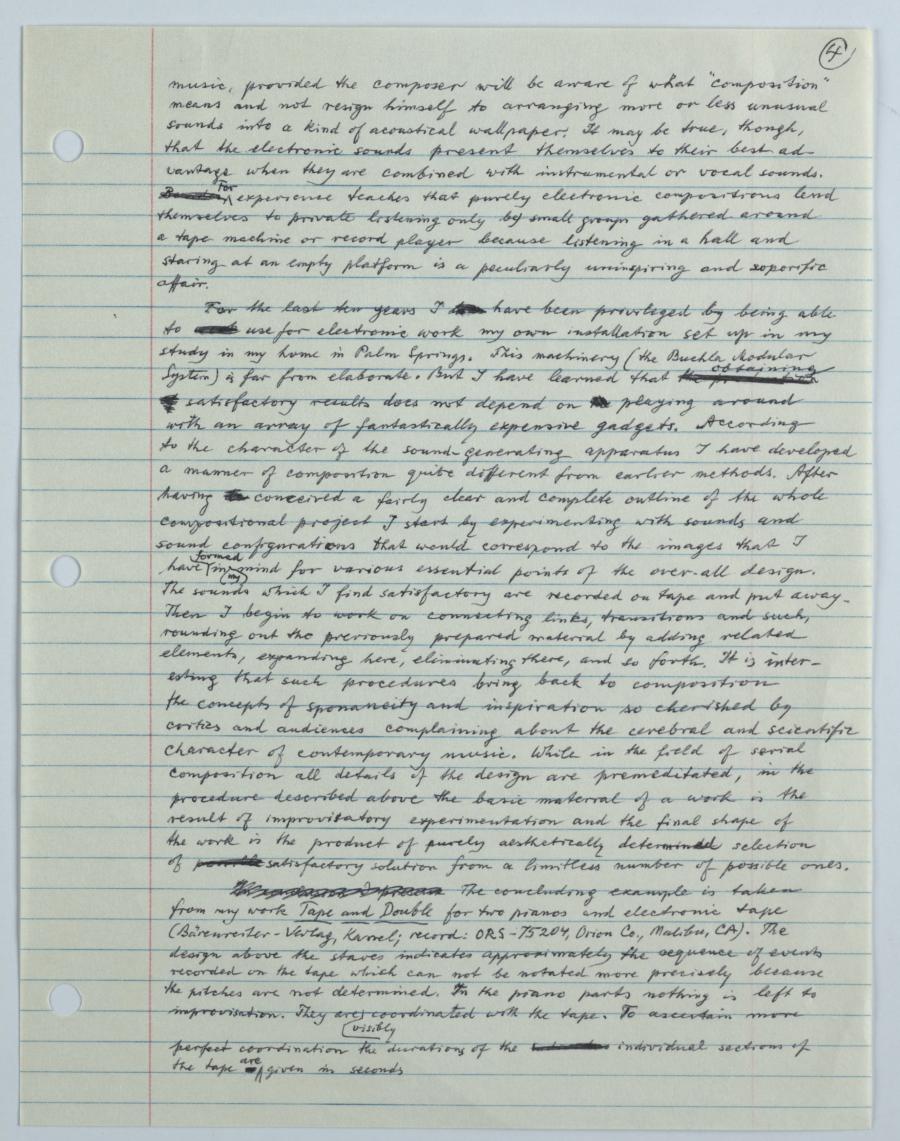 4
music, provided the composer will be aware of what "composition"
means and not resign himself to arranging more or less unusual
sounds into a kind of acoustical wallpaper. It may be true, though,
that the electronic sounds present themselves to their best ad-
vantage when they are combined with instrumental or vocal sounds.
For experience teaches that purely electronic compositions lend
themselves to private listening only by small groups gathered around
a tape machine or record player because listening in a hall and
staring at an empty platform is a peculiarly uninspiring and soporific
affair.
For the last ten years I have been privileged by being able
to use for electronic work my own installation set up in my
study in my home in Palm Springs. This machinery (the Buchla Modular
System) is far from elaborate. But I have learned that obtaining
satisfactory results does not depend on playing around
with an array of fantastically expensive gadgets. According
to the character of the sound-generating apparatus I have developed
a manner of composition quite different from earlier methods. After
having conceived a fairly clear and complete outline of the whole
compositional project I start by experimenting with sounds and
sound configurations that would correspond to the images that I
have formed in my mind for various essential points of the over-all design.
The sounds which I find satisfactory are recorded on tape and put away.
Then I begin to work on connecting links, transitions and such,
rounding out the previously prepared material by adding related
elements, expanding here, eliminating there, and so forth. It is inter-
esting that such procedures bring back to composition
the concepts of sponaneity and inspiration so cherished by
critics and audiences complaining about the cerebral and scientific
character of contemporary music. While in the field of serial
composition all details of the design are premeditated, in the
procedure described above the basic material of a work is the
result of improvisatory experimentation and the final shape of
the work is the product of purely aesthetically determined selection
of satisfactory solution from a limitless number of possible ones.
The concluding example is taken
from my work Tape and Double for two pianos and electronic tape
(Bärenreiter-Verlag, Kassel; record: ORS-75204, Orion Co., Malibu, CA). The
design above the staves indicates approximately the sequence of events
recorded on the tape which can not be notated more precisely because
the pitches are not determined. In the piano parts nothing is left to
improvisation. They are visibly coordinated with the tape. To ascertain more
perfect coordination the durations of the individual sections of
the tape are given in seconds